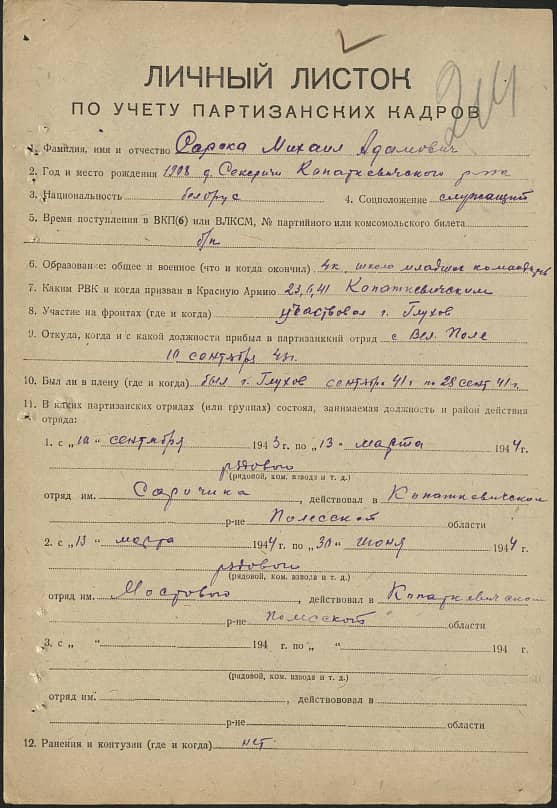 214
ЛИЧНЫЙ ЛИСТОК
ПО УЧЕТУ ПАРТИЗАНСКИХ КАДРОВ
1. Фамилия, имя и отчество Михаил Адамович
2. Год и место рождения 1908 д. Секеричи Копаткевичского р-на
3. Национальность белорус 4. Соцположение служащий
5. Время поступления в ВКП(б) или ВЛКСМ, № партийного или комсомольского билета
б/п
6. Образование: общее и военное (что и когда окончил) 4 к. школа младших командиров
7. Каким РВК и когда призван в Красную Армию 23,6,41 Копаткевичским
8. Участие на фронтах (где и когда) участвовал г. Глухов
9. Откуда, когда и с какой должности прибыл в партизанкий отряд с Вел. Поле
10 сентября 43г.
10. Был ли в плену (где и когда) был г. Глухов сентябр 41 г по 28 сент 41 г.
11. В каких партизанских отрядах (или группах) состоял, занимаемая должность и район действия
отряда:
1. с „10" сентября 1943 г. по „13" марта 1944 г.
рядового
(рядовой, ком. взвода и т. д.)
отряд им. , действовал в Копаткевичском
р-не Полесской области
2. с „13" марта 1944 г. по „30" июня 1944 г.
рядового
(рядовой, ком. взвода и т. д.)
отряд им. Мостового , действовал в Копаткевичском
р-не Полесской области
3. с „ " 194 г. по „ " 194 г.
(рядовой, ком. взвода и т. д.)
отряд им. , действововал в
р-не области
12. Ранения и контузии (где и когда) нет